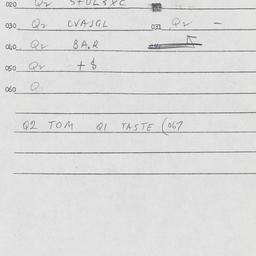 020 Q2
030 Q2 LVAJGL 031 Q2 -
040 Q2 BA,R
050 Q2 + $
060 Q
Q2 TOM Q1 TASTE (067